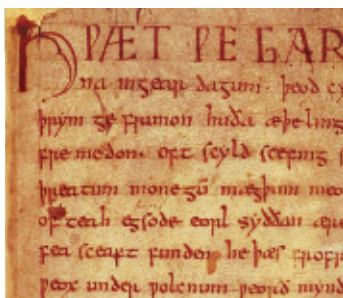 HǷÆT ǷE GAR
na ingear dagum. þeod cy
þrym ge frunon huða æþeling
fre medon. oft scyld scefing s
þreatum monegū mægþum meo
of teah egsode eorl syððan ære
fea sceaft funden he þæs frofr
ƿeox under ƿolcnum ƿeorð mynd